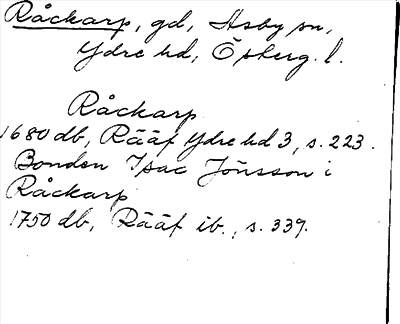 Råckarp, gd, Asby sn,
Ydre hd, Österg. l.
Råckarp
1680 db, Rääf Ydre hd 3, s. 223.
Bonden Isac Jönsson i
Råckarp
1750 db, Rääf ib., s. 339.